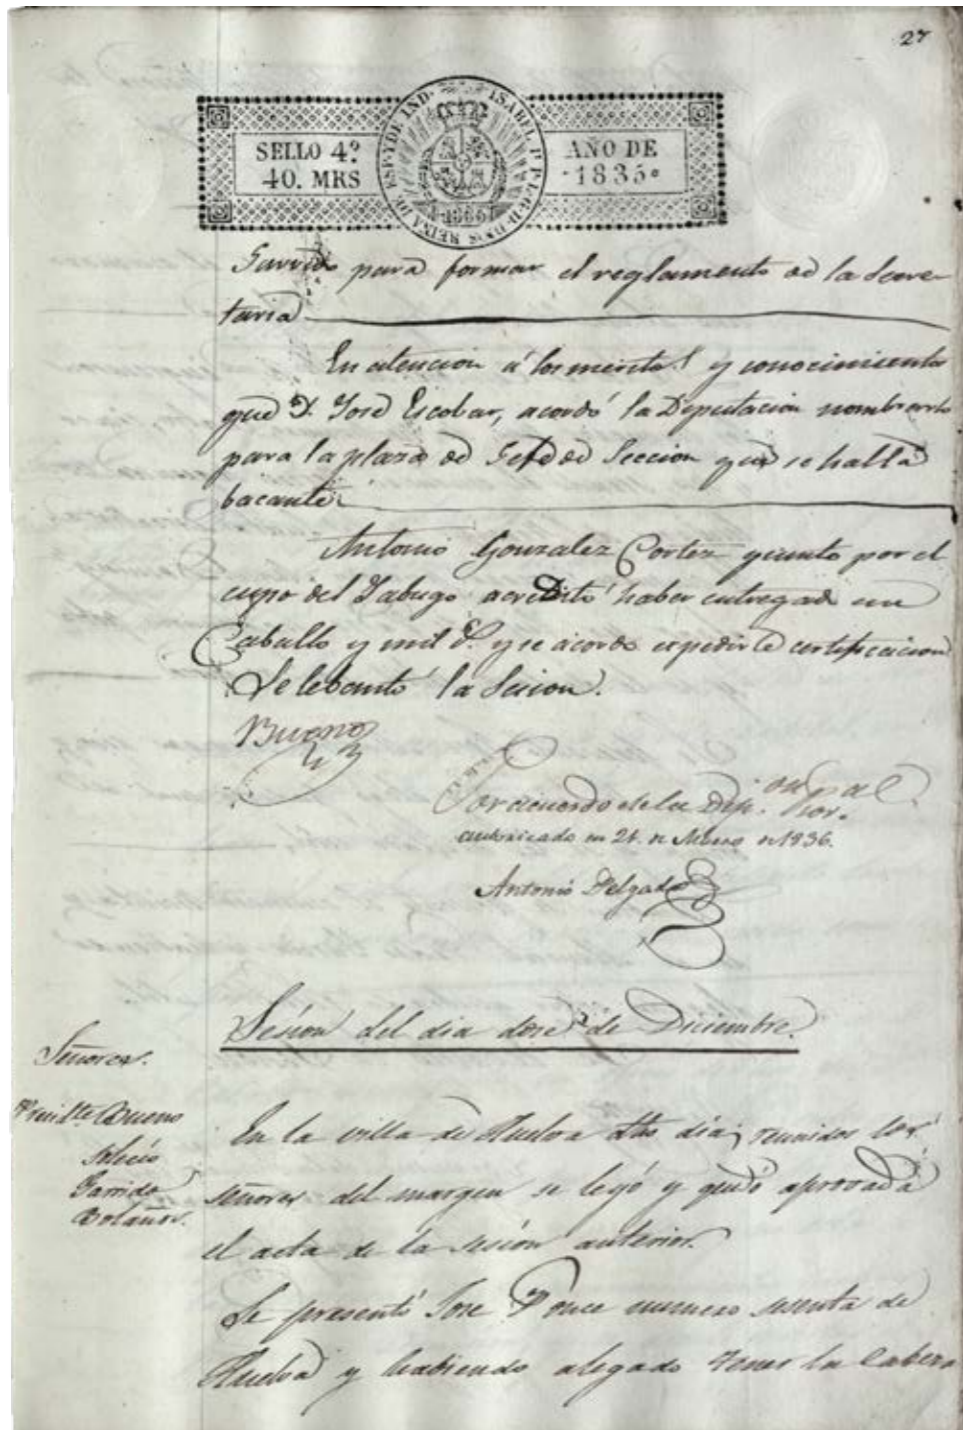 27
SELLO 4º
40. MRS
ISABEL 2ª P. L. G. D. DIOS REINA DE ESP. Y DE IND.
1835
AÑO DE
1835
Garrido para formar el reglamento de la Secre-
taria
En atencion á los meritos y conocimientos
que D. José Escobar, acordó la Diputacion nombrarlo
para la plaza de Gefe de Seccion que se halla
bacante.
Antonio Gonzalez Cortez quinto por el
cupo del Jabugo acreditó haber entregado un
Caballo y mil rs. y se acordo expedirle certificacion
Se lebantó la Sesion.
Bueno
Por acuerdo de la Dip.on
autorizado en 21. de Marzo de 1836.
Antonio Delgado
Sesion del dia dose de Diciembre.
Señores.
Presidte. Bueno
Garrido
Bolaños.
En la villa de Huelva dho dia, reunidos los
señores del margen se leyó y quedó aprovada
el acta de la sesion anterior.
Se presentó Jose Ponce numero sesenta de
Huelva y habiendo alegado tener la cabeza